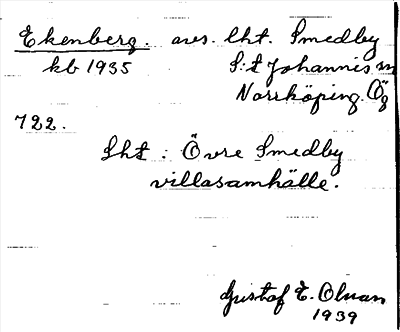 Ekenberg. avs. lht. Smedby
kb 1935 S:t Johannis sn
Norrköping. Ög
722.
Lht : Övre Smedby
villasamhälle.
Gustaf E. Olman
1939